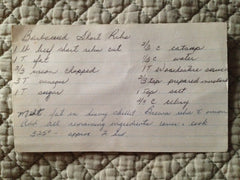 Barbecued Short Ribs
1 lb beef short ribs cut
1 T fat
2/3 onion chopped
2 T vinegar
1 T sugar
2/3 c catsup
2/3 c water
1 T Worcestershire sauce
2/3 tsp prepared mustard
1 tsp salt
1/2 c celery
Melt fat in deep skillet Brown ribs & onion
Add all remaining ingredients cover & cook
325° - approx 2 hrs